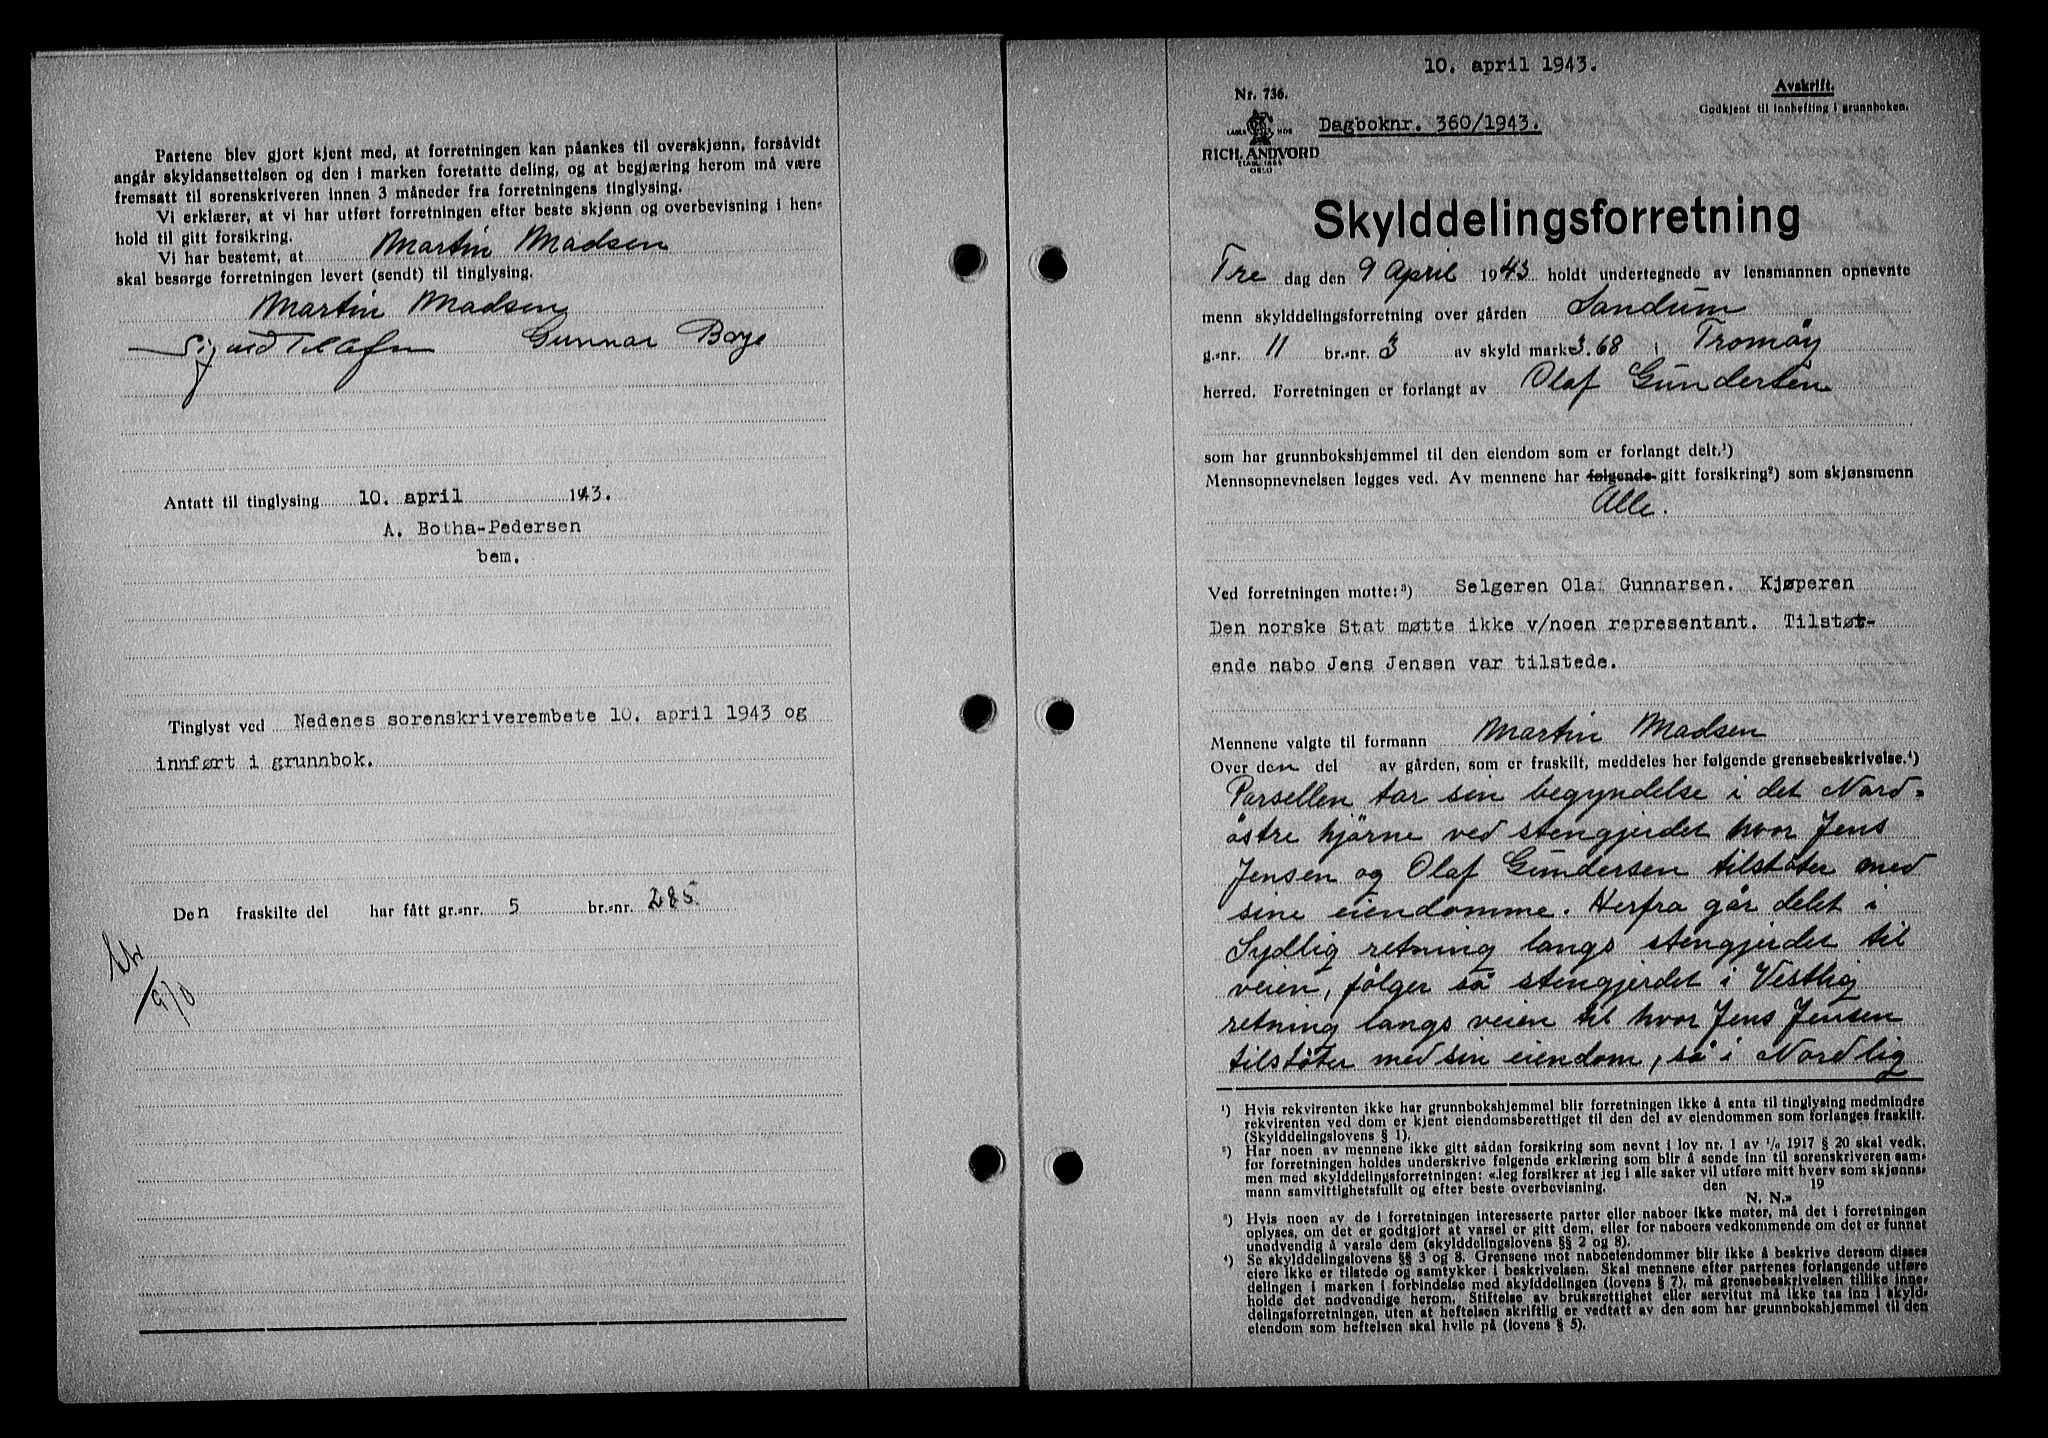 Partene blev gjort kjent med, at forretningen kan påankes til overskjønn, forsåvidt
angår skyldansettelsen og den i marken foretatte deling, og at begjæring herom må være
fremsatt til sorenskriveren innen 3 måneder fra forretningens tinglysing.
Vi erklærer, at vi har utført forretningen efter beste skjønn og overbevisning i hen-
hold til gitt forsikring.
Vi har bestemt, at Martin Madsen
skal besørge forretningen levert (sendt) til tinglysing.
Martin Madsen
Gunnar Boye
Antatt til tinglysing 10. april 1943.
A. Botha-Pedersen
bem.
Tinglyst ved Nedenes sorenskriverembete 10. april 1943 og
innført i grunnbok.
Den fraskilte del har fått gr.-nr. 5 br.-nr. 285.
10. april 1943.
Avskrift.
Godkjent til innhefting i grunnboken.
Nr. 736.
LAGER HOS
Dagboknr. 360/1943.
RICH. ANDVORD
ETABL. 1865
OSLO
Skylddelingsforretning
Tre dag den 9 April 1943 holdt undertegnede av lensmannen opnevnte
menn skylddelingsforretning over gården Sandum
g.-nr. 11 br.-nr. 3 av skyld mark 3.68 i Tromøy
herred. Forretningen er forlangt av Olaf Gundersen
som har grunnbokshjemmel til den eiendom som er forlangt delt.¹)
Mennsopnevnelsen legges ved. Av mennene har følgende gitt forsikring²) som skjønsmenn
Alle.
Ved forretningen møtte:³) Selgeren Olaf Gunnarsen. Kjøperen
Den norske Stat møtte ikke v/noen representant. Tilstøt-
ende nabo Jens Jensen var tilstede.
Mennene valgte til formann Martin Madsen
Over den del av gården, som er fraskilt, meddeles her følgende grensebeskrivelse.⁴)
Parsellen tar sin begyndelse i det Nord-
östre hjörne ved stengjerdet hvor Jens
Jensen og Olaf Gundersen tilstöter med
sine eiendomme. Herfra går delet i
Sydlig retning langs stengjerdet til
veien, fölger så stengjerdet i Vestlig
retning langs veien til hvor Jens Jensen
tilstöter med sin eiendom, så i Nordlig
¹) Hvis rekvirenten ikke har grunnbokshjemmel blir forretningen ikke å anta til tinglysing medmindre
rekvirenten ved dom er kjent eiendomsberettiget til den del av eiendommen som forlanges fraskilt.
(Skylddelingslovens § 1).
²) Har noen av mennene ikke gitt sådan forsikring som nevnt i lov nr. 1 av 1/6 1917 § 20 skal vedk.
før forretningen holdes underskrive følgende erklæring som blir å sende inn til sorenskriveren sam-
men med skylddelingsforretningen: «Jeg forsikrer at jeg i alle saker vil utføre mitt hverv som skjønns-
mann samvittighetsfullt og efter beste overbevisning. den 19
N. N.»
³) Hvis noen av de i forretningen interesserte parter eller naboer ikke møter, må det i forretningen
oplyses, om det er godtgjort at varsel er gitt dem, eller for naboers vedkommende om det er funnet
unødvendig å varsle dem (skylddelingslovens §§ 2 og 8).
⁴) Se skylddelingslovens §§ 3 og 8. Grensene mot naboeiendommer blir ikke å beskrive dersom disses
eiere ikke er tilstede og samtykker i beskrivelsen. Skal mennene efter partenes forlangende utføre
delingen i marken i forbindelse med skylddelingen (lovens § 7), må grensebeskrivelsen tillike inne-
holde det nødvendige herom. Stiftelse av bruksrettighet eller servitut må ikke tas inn i skyld-
delingsforretningen, uten at heftelsen skriftlig er vedtatt av den som har grunnbokshjemmel til den
eiendom som heftelsen skal hvile på (lovens § 5).